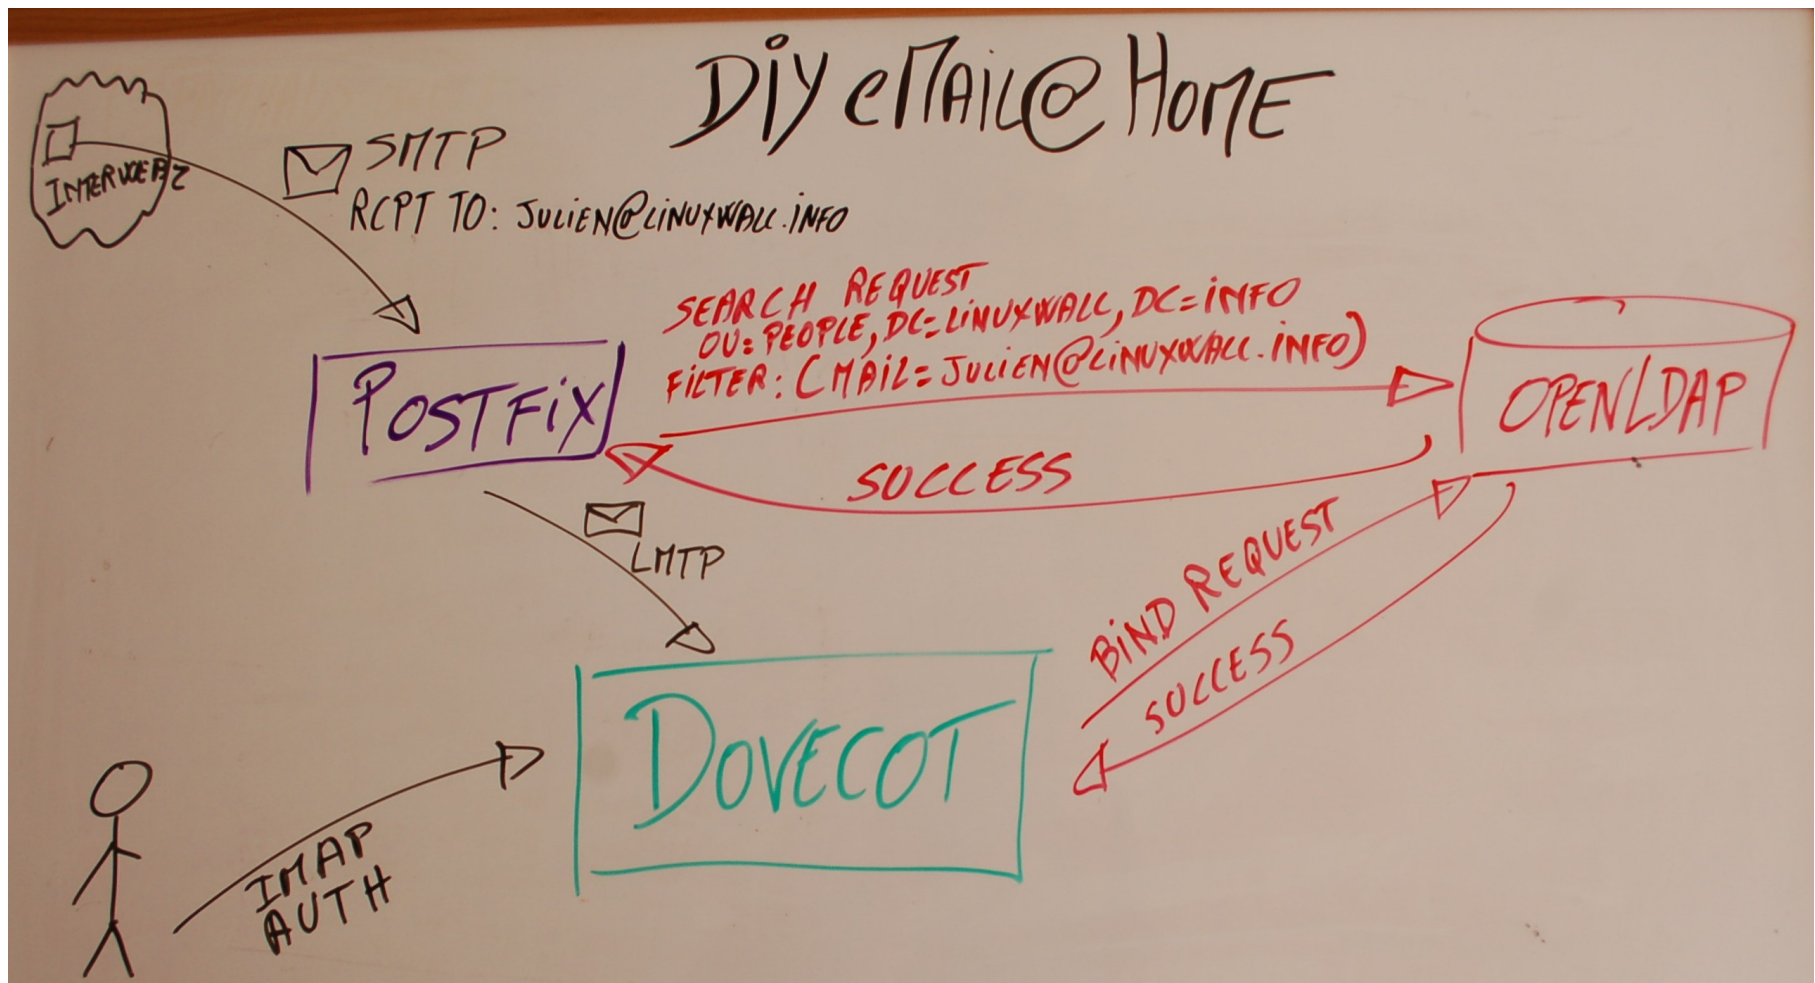 DiY eMAiL@HOME
INTERWEBZ
SMTP
RCPT TO: JULiEN@LiNUXWALL.iNFO
SEARCH REQUEST
OU=PEOPLE, DC=LiNUXWALL, DC=iNFO
FiLTER: (MAiL=JULiEN@LiNUXWALL.iNFO)
POSTFiX
OPENLDAP
SUCCESS
LMTP
BiND REQUEST
SUCCESS
DOVECOT
IMAP
AUTH